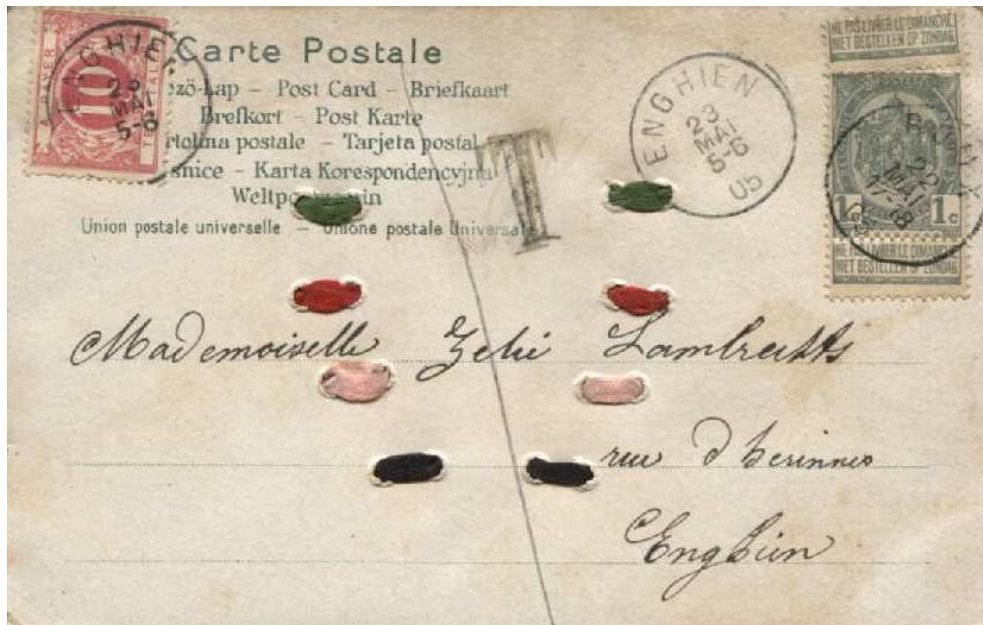 Carte Postale
Lap – Post Card – Briefkaart
Brefkort – Post Karte
postale – Tarjeta postal
Karta Korespondencyjna
Union postale universelle – Unione postale Universa
A PAYER
10
ENGHIEN
23
MAI
5-6
T
ENGHIEN
23
MAI
5-6
05
NE PAS LIVRER LE DIMANCHE
NIET BESTELLEN OP ZONDAG
22
MAI
1c 1c
NE PAS LIVRER LE DIMANCHE
NIET BESTELLEN OP ZONDAG
Mademoiselle Zelie Lambrechts
rue d'herinnes
Enghien